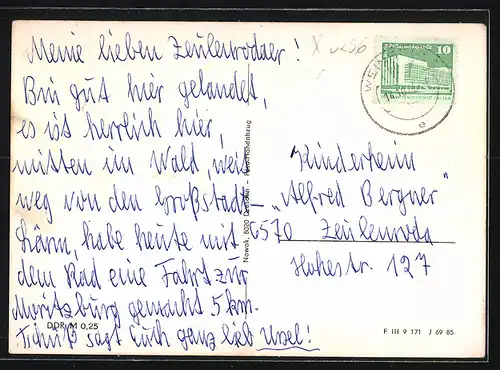 Meine lieben Zeulenrodaer!
Bin gut hier gelandet,
es ist herrlich hier,
mitten im Wald, weit
weg von den Großstadt-
lärm, habe heute mit
dem Rad eine Fahrt zur
Moritzburg gemacht 5 km.
Tschüß sagt Euch ganz lieb Ursel!
DDR M 0,25
Nowak, 8020 Dresden –
10
WEIN
Kinderheim
„Alfred Bergner"
6570 Zeulenroda
Hohestr. 127
F III 9 171 J 69 85